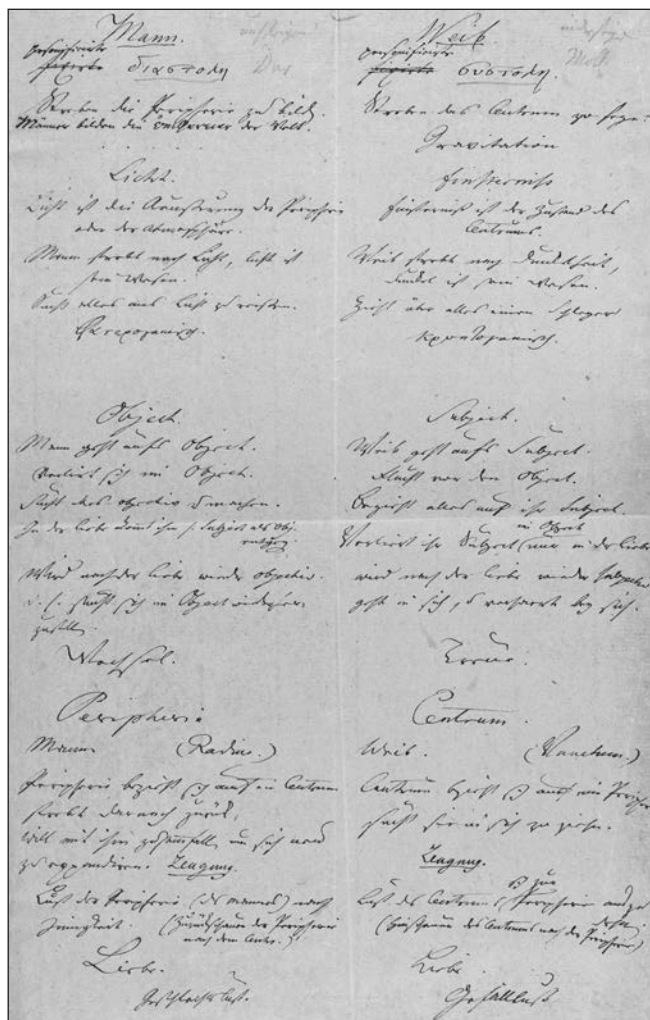 Mann.
personificirte
fixirte διαστολη
Dur
Streben die Peripherie zu bilden.
Männer bilden die der Welt.
Licht.
Licht ist die Äusserung der Peripherie
oder der Atmosphäre.
Mann strebt nach Licht, Licht ist
sein Wesen.
Sucht alles ans Licht zu
Object.
Mann geht aufs Object.
Verliert sich im Object.
Sucht alles objectiv zu machen.
In der Liebe kommt ihm s. Subject als Obj.
entgegen.
Wird nach der Liebe wieder objectiv.
d. h. sucht sich im Object
Wechsel.
Peripherie
Mann (Radius.)
Peripherie bezieht sich auf ein Centrum
strebt darnach zurück,
will mit ihm zusammenfallen, um sich neu
zu expandiren. Zeugung.
Lust der Peripherie (des Mannes) nach
Innigkeit. (Zurückschauen der Peripherie
nach dem Centr.)
Liebe.
Geschlechtslust.
Weib.
personificirte
Moll
fixirte συστολη.
Streben das Centrum zu
Gravitation
Finsterniss
Finsterniss ist der Zustand des
Centrums.
Weib strebt nach Dunkelheit,
Dunkel ist sein Wesen.
Zieht über alles einen Schleyer
Subject.
Weib geht aufs Subject.
Flieht vor dem Object.
Bezieht alles auf ihr Subject.
im Object
Verliert ihr Subject (nur in der Liebe
wird nach der Liebe wieder subjectiv
geht in sich, u verharrt bey sich.
Treue.
Centrum.
Weib. (Punctum.)
Centrum bezieht sich auf eine Peripherie
sucht sie in sich zu ziehn.
Zeugung.
sich zur
Lust des Centrums Peripherie auszudehn.
(Hinschauen des Centrums nach der Peripherie)
Liebe.
Gefalllust